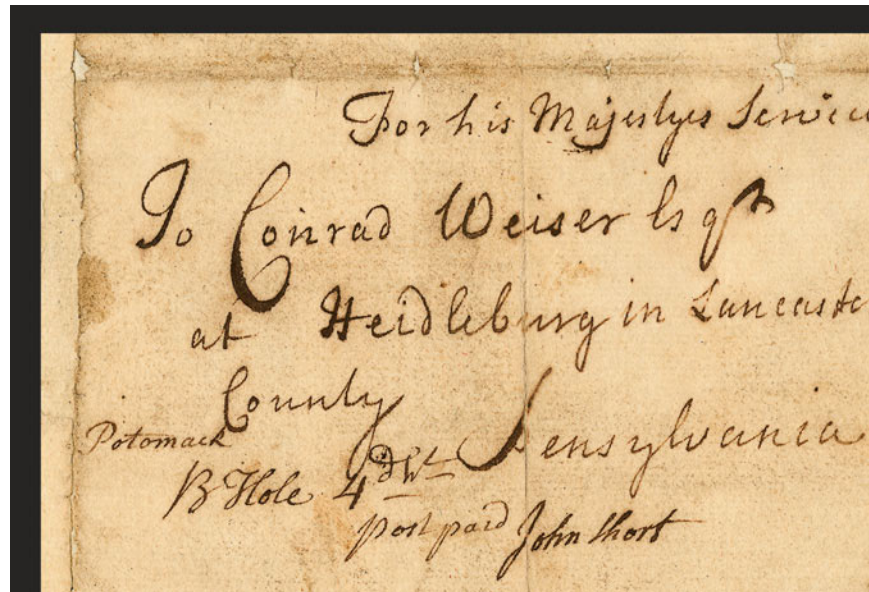 For his Majestyes Servic
To Conrad Weiser Esqr
at Heidleburg in Lancaste
County
Pensylvania
Potomack
B Hole 4 dwt
post paid John Short